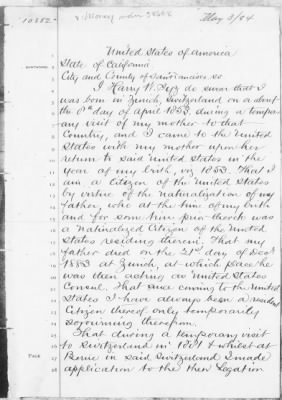 10352
May 3/84
United States of America
State of California
City and County of San Francisco ss
I Harry W. do swear that I
was born in Zurich, Switzerland on or about
the 8th day of April 1853 during a tempor-
ary visit of my mother to that
Country, and I came to the United
States with my mother upon her
return to said United States in the
Year of my birth, viz 1853. That I
am a Citizen of the United States
by virtue of the naturalization of my
father, who at the time of my birth
and for some time prior thereto was
a Naturalized Citizen of the United
States residing therein. That my
father died on the 21st day of
1883 at Zurich, at which place he
was then acting as United States
Consul. That since coming to the United
States I have always been a resident
Citizen thereof only temporarily
sojourning therefrom.
That during a temporary visit
to Switzerland in 1881 & whilst at
Berne in said Switzerland I made
application to the then Legation